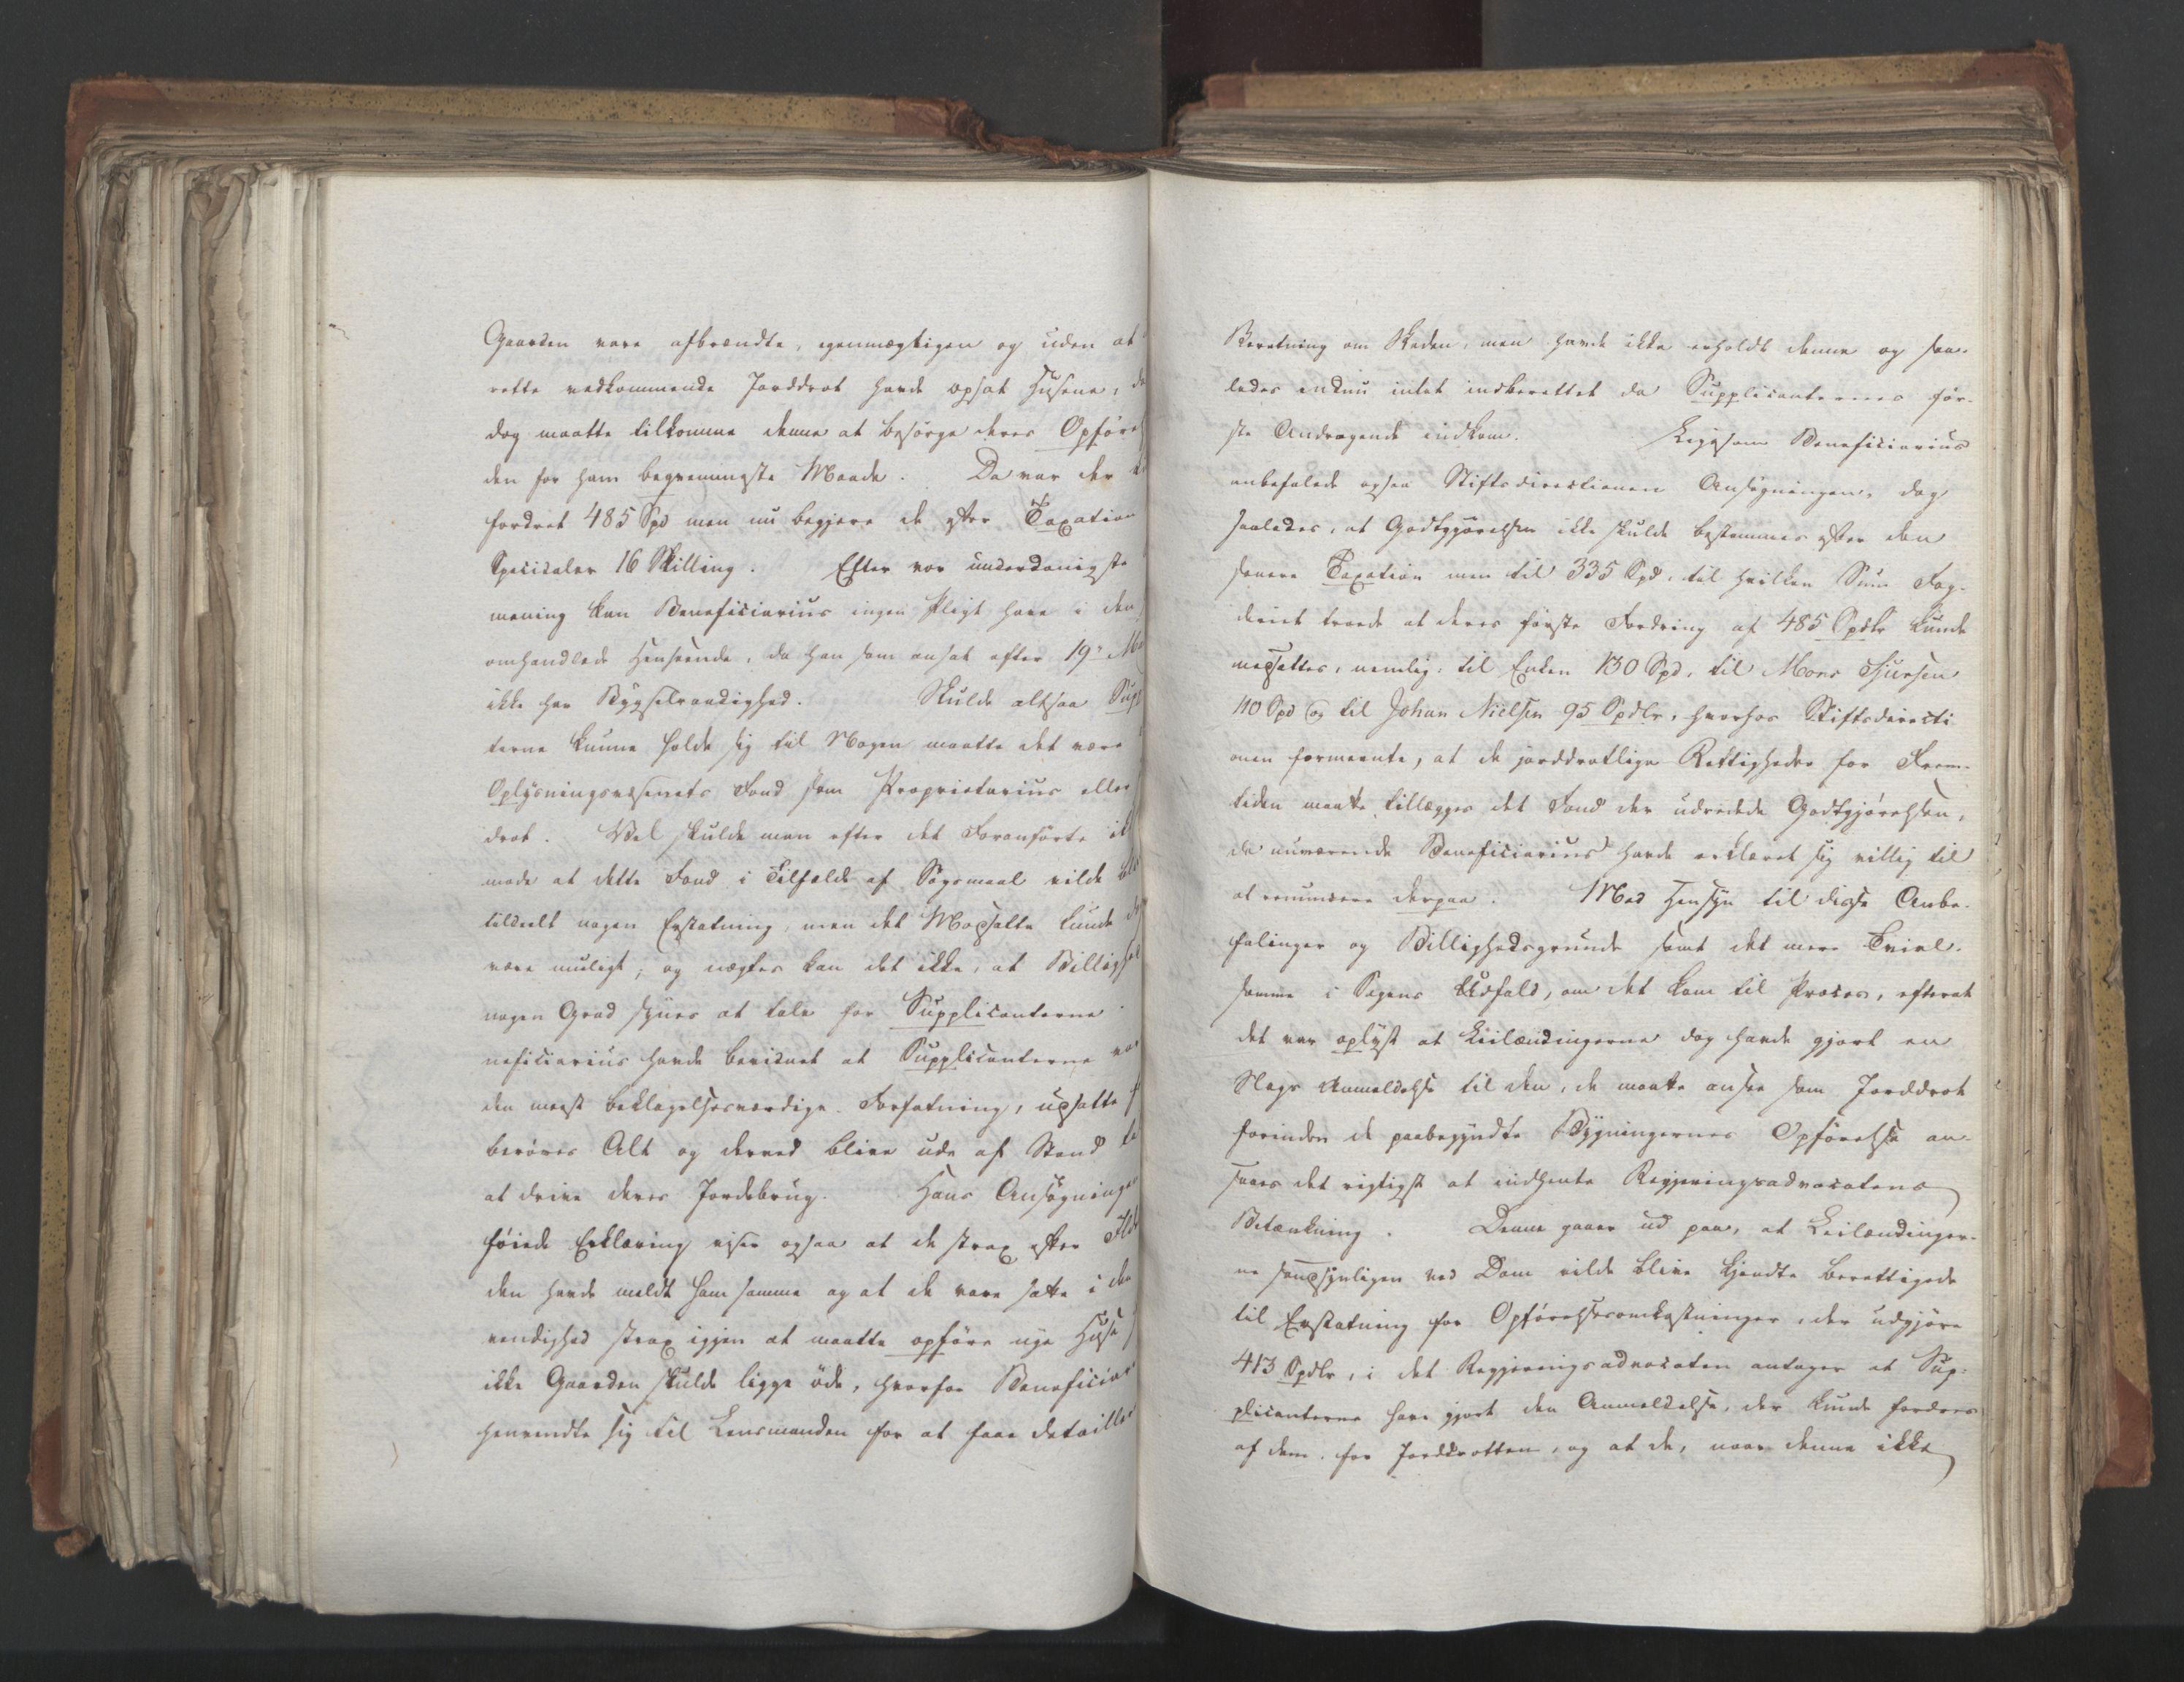 Gaarden vare afbrændte, egenmægtigen og uden at
rette vedkommende Jorddrot havde opsat Husene, da
dog maatte tilkomme denne at besørge deres Opfør
den for ham beqvemmeste Maade. Da var der
fordret 485 Spd men nu begjere de efter Taxation
Specidaler 16 Skilling. Efter vor underdanigste
mening kan Beneficiarius ingen Pligt have i den
omhandlede Henseende, da han som ansat efter 19de Ma
ikke har Bygselraadighed. Skulde altsaa Sup
terne kunne holde sig til Nogen maatte det være
Oplysningsvæsenets Fond som Proprietarius eller
drot. Vel skulde man efter det Foranførte ik
mode at dette Fond i Tilfælde af Søgsmaal vilde bli
tildeelt nogen Erstatning, men det Modsatte kunde
være muligt, og nægtes kan det ikke, at Billighed
nogen Grad synes at tale for Supplicanterne
neficiarius havde bevidnet at Supplicanterne var
den meest beklagelsesværdige Forfatning, udsatte f
berøves Alt og derved blive ude af Stand til
at drive deres Jordebrug. Hans Ansøgningen
føiede Erklæring viser ogsaa at de strax efter Ilde
den havde meldt ham samme og at de vare satte i den
vendighed strax igjen at maatte opføre nye Huse
ikke Gaarden skulde ligge øde, hvorfor Beneficiar
henvendte sig til Lensmanden for at faae detailler
Beretning om Skaden, men havde ikke erholdt denne og saa-
ledes endnu intet indberettet da Supplicanternes før-
ste Andragende indkom. Ligesom Beneficiarius
anbefalede ogsaa Stiftsdirectionen Ansøgningen, dog
saaledes, at Godtgjørelsen ikke skulde bestemmes efter den
senere Taxation men til 335 Spd, til hvilken Sum Fog-
deriet troede at deres første Fordring af 485 Spdlr kunde
nedsættes, nemlig: til Enken 130 Spd, til Mons Siursen
110 Spd og til Johan Nielsen 95 Spdlr, hvorhos Stiftsdirecti
onen formeente, at de jorddrotlige Rettigheder for Frem-
tiden maatte tillægges det Fond der udredede Godtgjørelsen,
da nuværende Beneficiarius havde erklæret sig villig til
at renuncere derpaa. Med Hensyn til disse Anbe-
falinger og Billighedsgrunde samt det mere Tvivl-
somme i Sagens Udfald, om det kom til Proces, efterat
det var oplyst at Leilændingerne dog havde gjort en
Slags Anmeldelse til den, de maatte ansee som Jorddrot
forinden de paabegyndte Bygningernes Opførelse an-
saaes det rigtigst at indhente Regjeringsadvocatens
Betænkning. Denne gaaer ud paa, at Leilændinger-
ne sandsynligen ved Dom vilde blive kjendte berettigede
til Erstatning for Opførelsesomkostninger, der udgjøre
413 Spdlr, i det Regjeringsadvocaten antager at Sup-
plicanterne have gjort den Anmeldelse, der kunde fordres
af dem for Jorddrotten, og at de, naar denne ikke